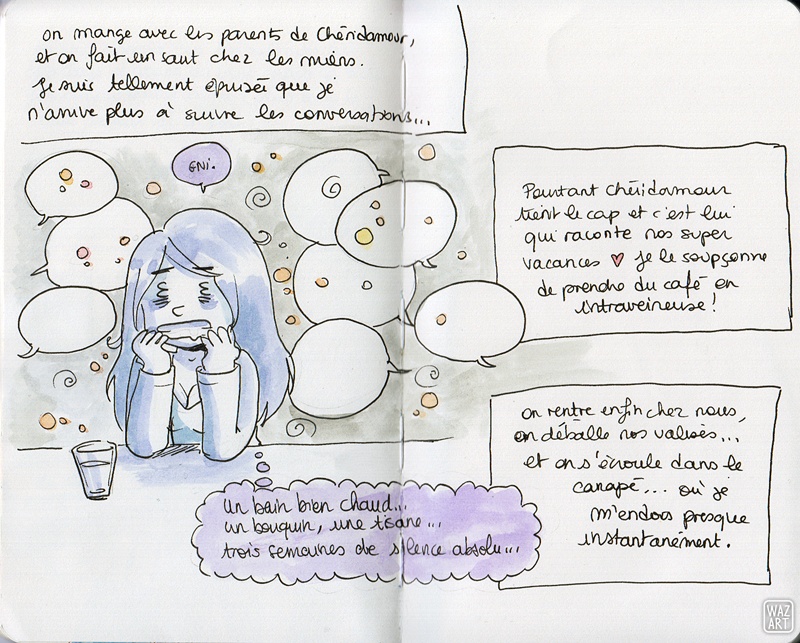 on mange avec les parents de Chéridamour,
et on fait un saut chez les miens.
Je suis tellement épuisée que je
n'arrive plus à suivre les conversations...
GNI.
Pourtant Chéridamour
tient le cap et c'est lui
qui raconte nos super
vacances ♥ Je le soupçonne
de prendre du café en
intraveineuse!
un bain bien chaud...
un bouquin, une tisane...
trois semaines de silence absolu...
on rentre enfin chez nous,
on déballe nos valises...
et on s'écroule dans le
canapé... où je
m'endors presque
instantanément.
WAZ
ART